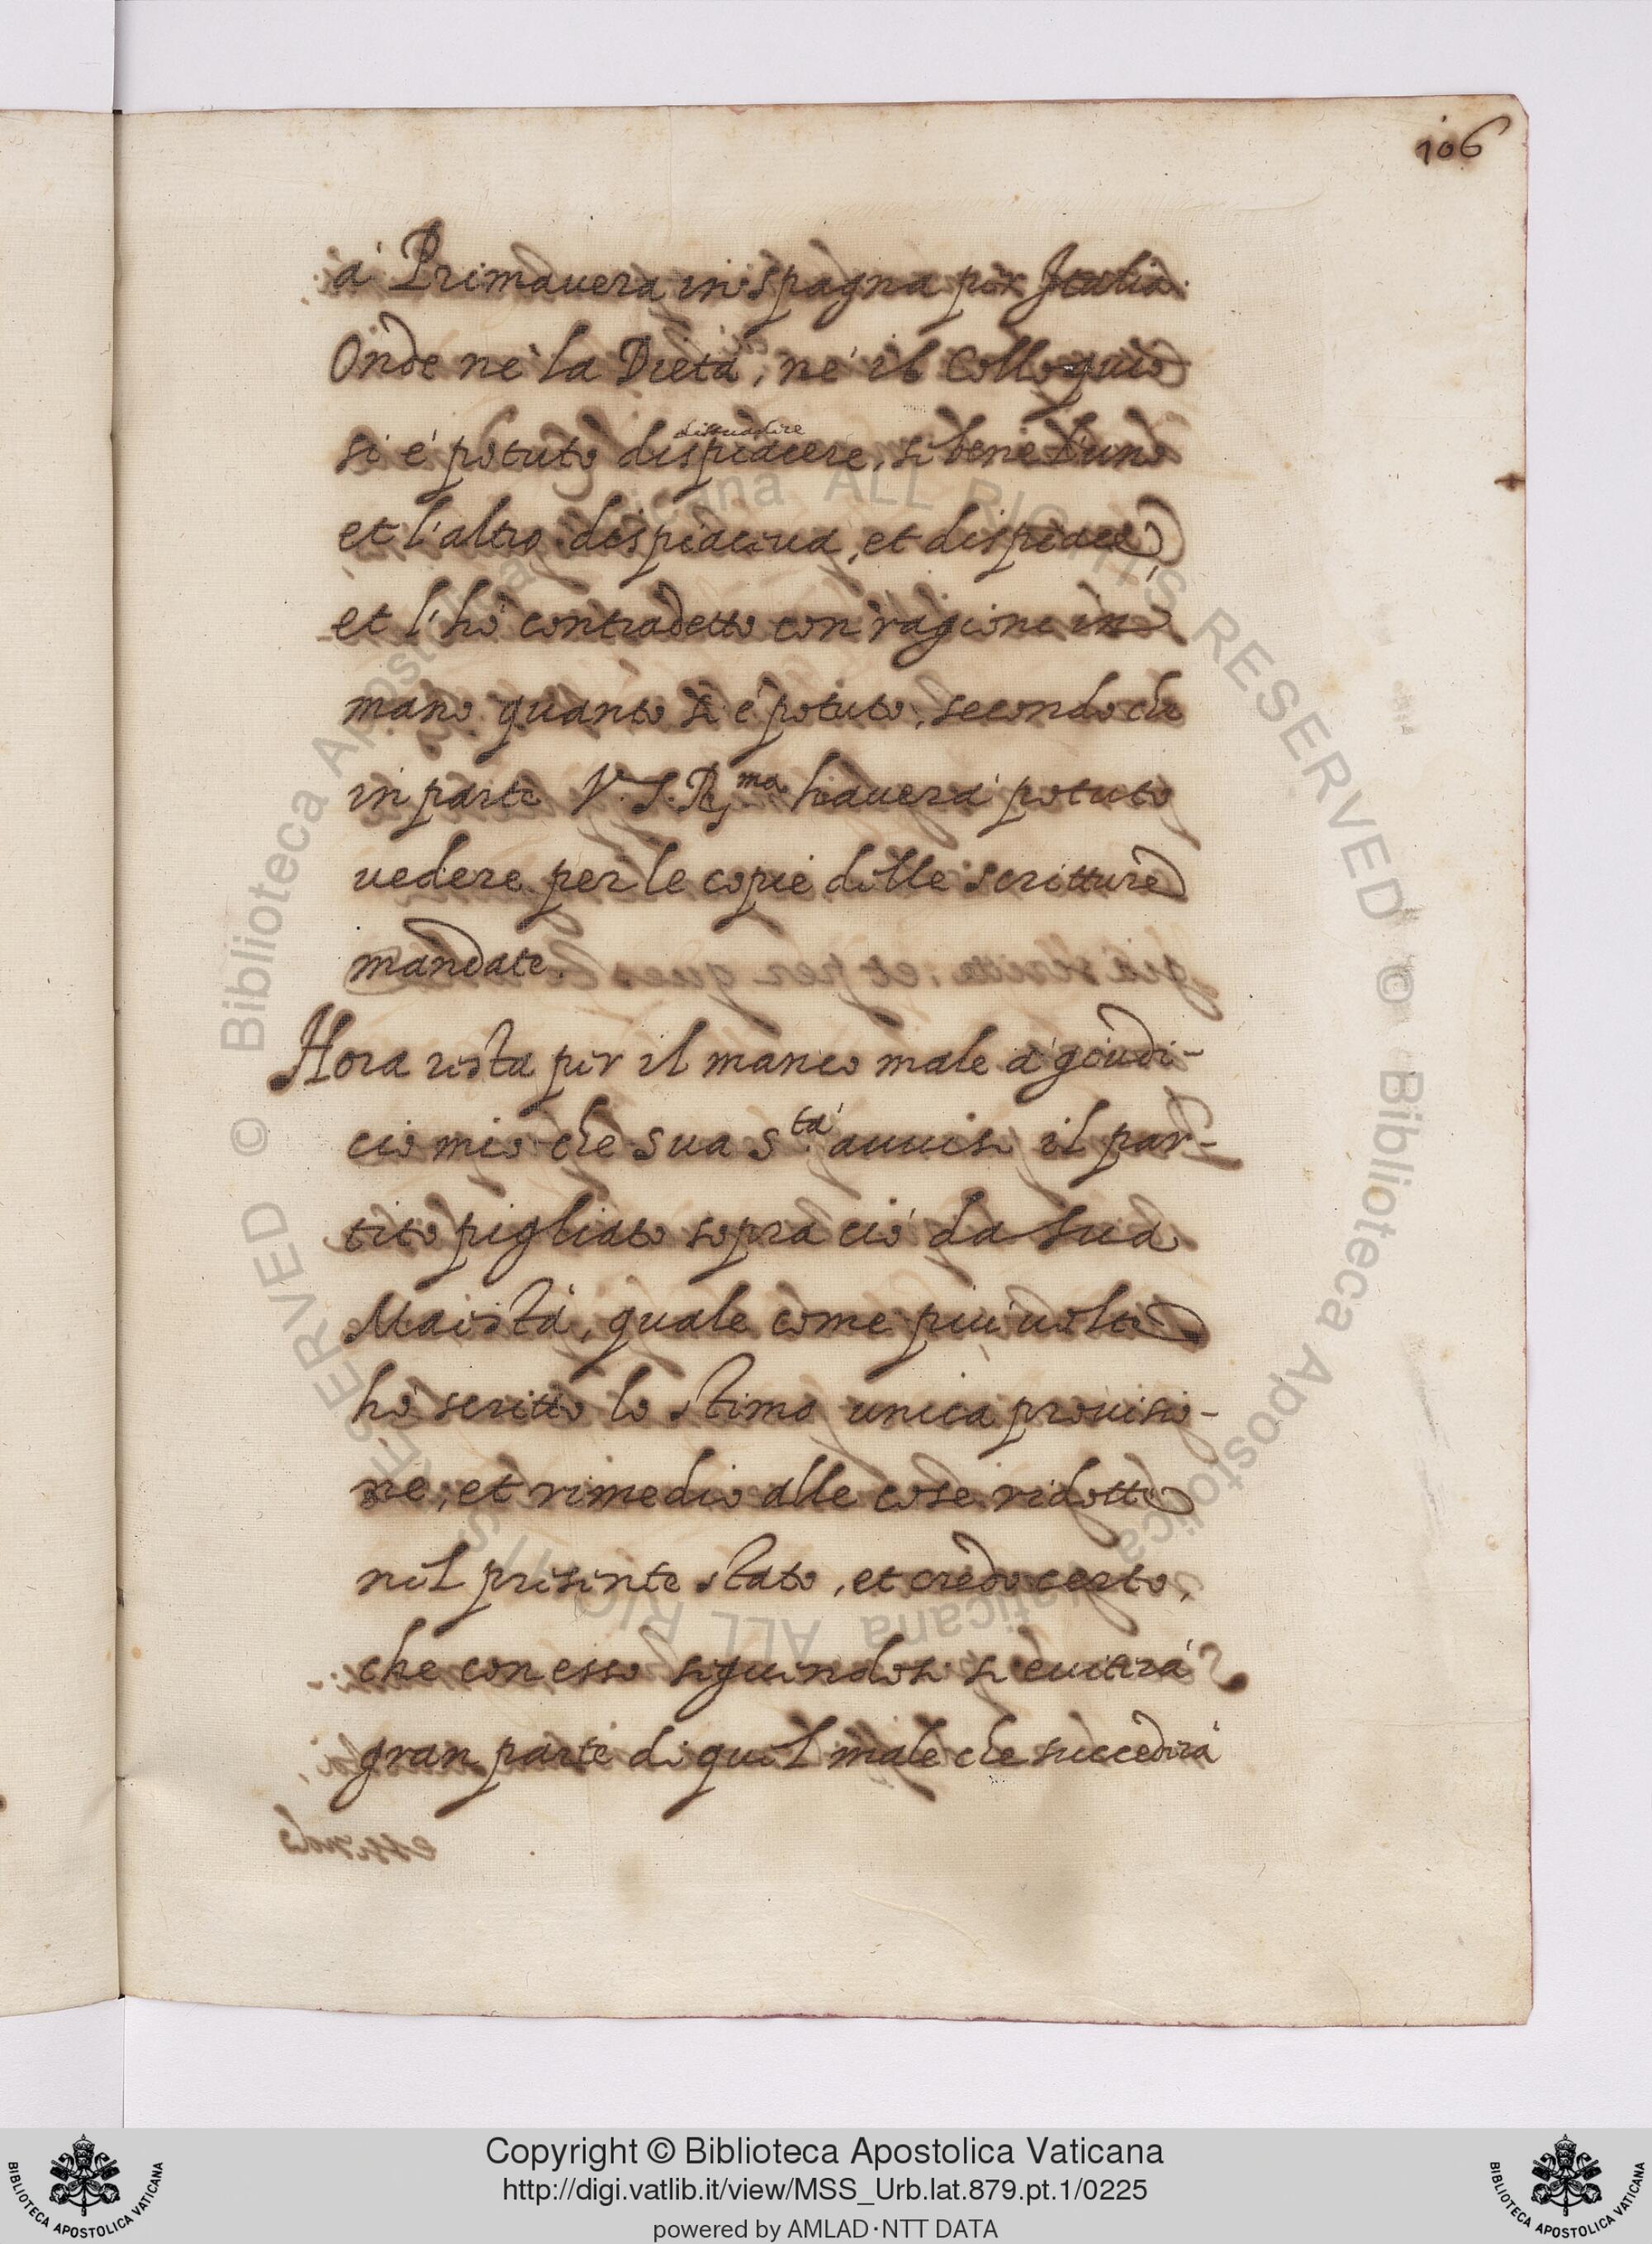 106
à Primauera in spagna per Italia.
Onde ne la Dieta, ne il Colloquio
si é potuto dispiacere, si bene l'uno
dissuadire
et l'altro dispiaceua, et dispiace
et l'hò contradetto con ragione in
mano quanto si é potuto, secondo che
in parte V. S. R.ma hauera potuto
vedere per le copie delle scritture
mandate.
Hora resta per il manco male à giudi-
cio mio che sua S.tà auuisi il par-
tito pigliato sopra ciò da sua
Maiestà, quale come più uolte
hò scritto lo stimo unica prouisio-
ne, et rimedio alle cose ridotte
nel presente stato, et credo certo,
che con esso seguendosi si euiterà
gran parte di quel male che succedirà
Copyright © Biblioteca Apostolica Vaticana
http://digi.vatlib.it/view/MSS_Urb.lat.879.pt.1/0225
powered by AMLAD·NTT DATA
BIBLIOTECA APOSTOLICA VATICANA
BIBLIOTECA APOSTOLICA VATICANA